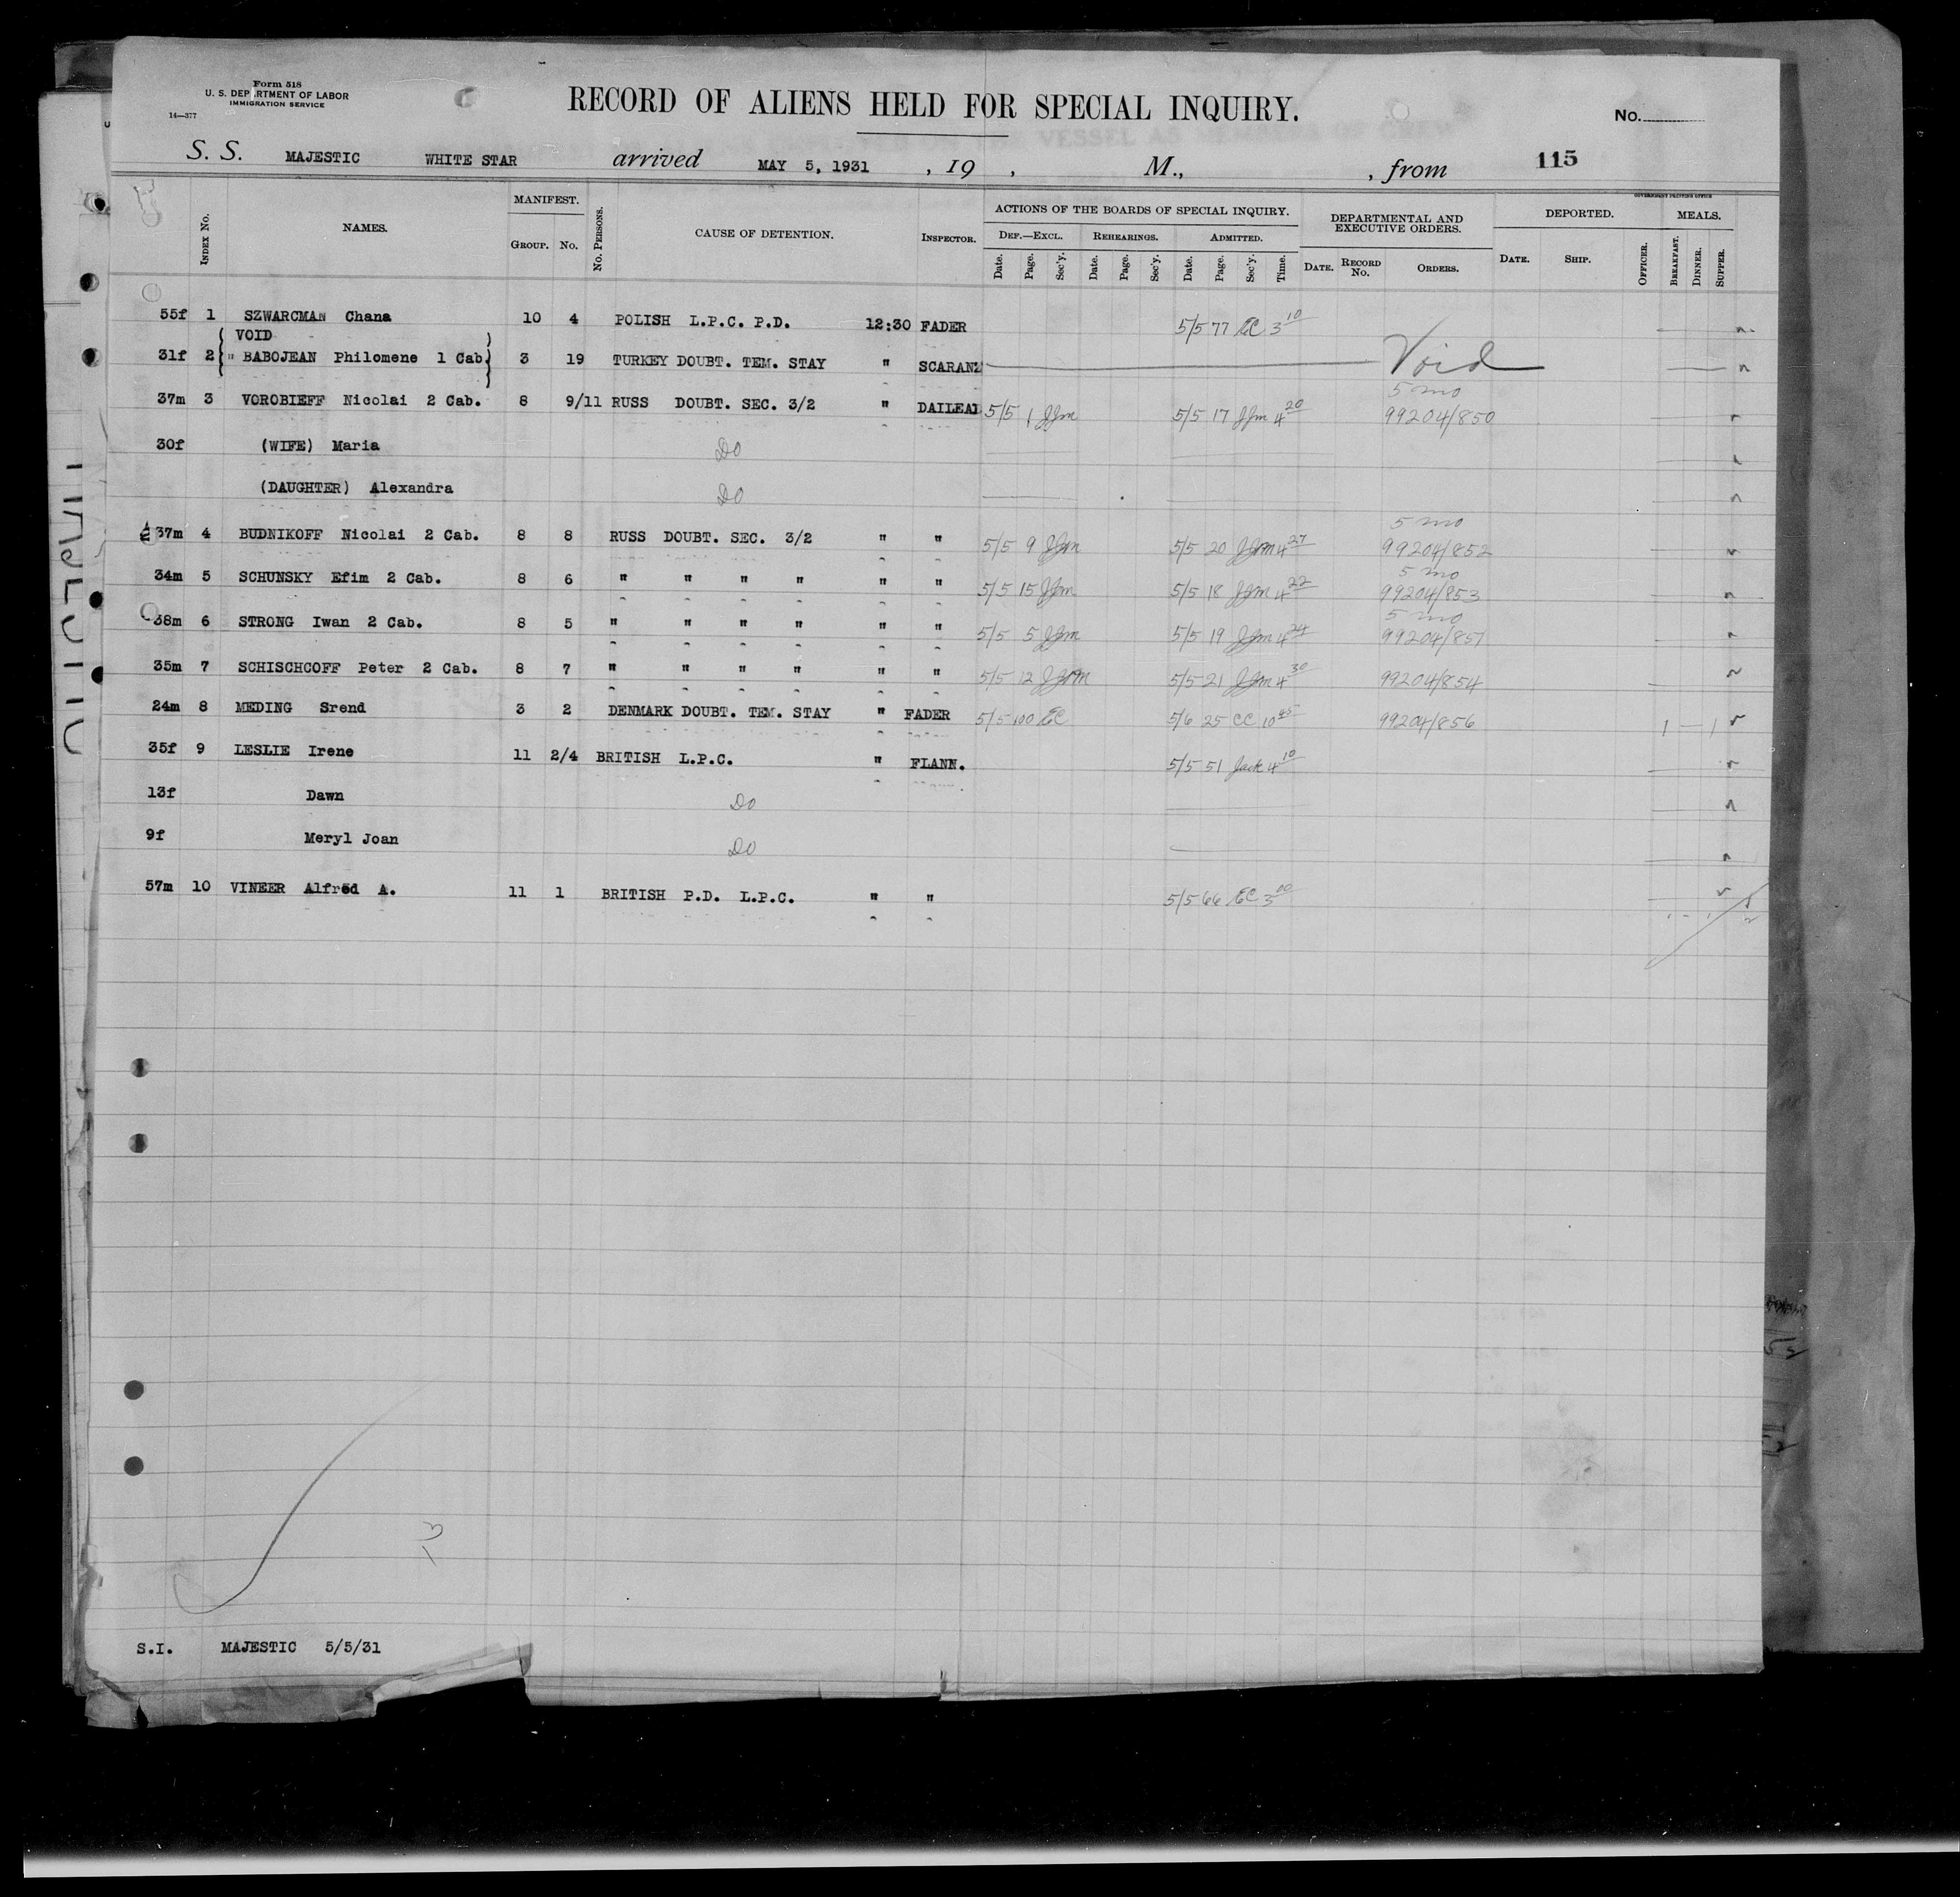 Form 518
U. S. DEPARTMENT OF LABOR
IMMIGRATION SERVICE
14—377
RECORD OF ALIENS HELD FOR SPECIAL INQUIRY.
No.
S. S. MAJESTIC WHITE STAR arrived MAY 5, 1931 , 19 , M., , from 115
GOVERNMENT PRINTING OFFICE
INDEX NO. NAMES. MANIFEST. NO. PERSONS. CAUSE OF DETENTION. INSPECTOR. ACTIONS OF THE BOARDS OF SPECIAL INQUIRY. DEPARTMENTAL AND EXECUTIVE ORDERS. DEPORTED. OFFICER. MEALS.
GROUP. No. DEF.—EXCL. REHEARINGS. ADMITTED.
Date. Page. Sec'y. Date. Page. Sec'y. Date. Page. Sec'y. Time. DATE. RECORD No. ORDERS. DATE. SHIP. BREAKFAST. DINNER. SUPPER.
55f 1 SZWARCMAN Chana 10 4 POLISH L.P.C. P.D. 12:30 FADER 5/5 77 EC 3 10
VOID
31f 2 " BABOJEAN Philomene 1 Cab. 3 19 TURKEY DOUBT. TEM. STAY " SCARANZ Void
5 mo
37m 3 VOROBIEFF Nicolai 2 Cab. 8 9/11 RUSS DOUBT. SEC. 3/2 " DAILEAD 5/5 1 JJm 5/5 17 JJm 4 20 99204/850
30f (WIFE) Maria Do
(DAUGHTER) Alexandra Do
5 mo
37m 4 BUDNIKOFF Nicolai 2 Cab. 8 8 RUSS DOUBT. SEC. 3/2 " " 5/5 9 JJm 5/5 20 JJm 4 27 99204/852
5 mo
34m 5 SCHUNSKY Efim 2 Cab. 8 6 " " " " " " 5/5 15 JJm 5/5 18 JJm 4 22 99204/853
5 mo
38m 6 STRONG Iwan 2 Cab. 8 5 " " " " " " 5/5 5 JJm 5/5 19 JJm 4 24 99204/851
35m 7 SCHISCHCOFF Peter 2 Cab. 8 7 " " " " " " 5/5 12 JJm 5/5 21 JJm 4 30 99204/854
24m 8 MEDING Srend 3 2 DENMARK DOUBT. TEM. STAY " FADER 5/5 100 EC 5/6 25 CC 10 45 99204/856 1 — 1
35f 9 LESLIE Irene 11 2/4 BRITISH L.P.C. " FLANN. 5/5 51 Jack 4 10
13f Dawn Do
9f Meryl Joan Do
57m 10 VINEER Alfred A. 11 1 BRITISH P.D. L.P.C. " " 5/5 66 EC 3 00
13
S.I. MAJESTIC 5/5/31
MAJESTIC